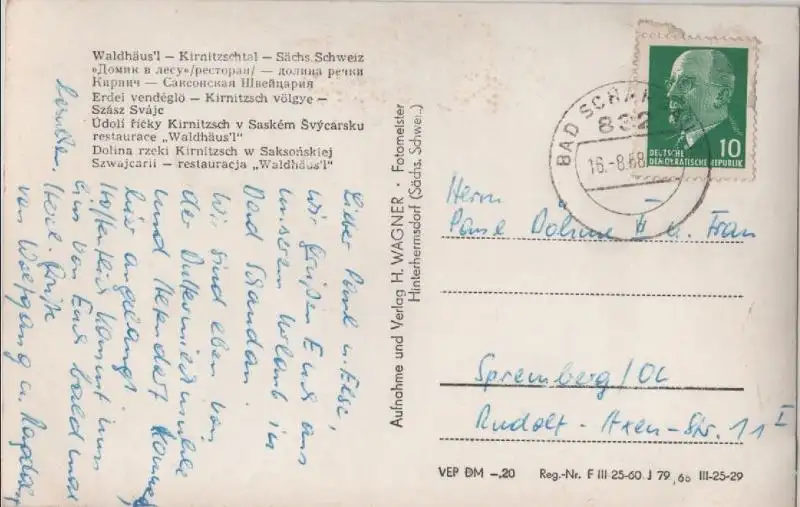 Waldhäus'l – Kirnitzschtal – Sächs. Schweiz
»Домик в лесу»/ресторан/ — долина речки
Кирнич — Саксонская Швейцария
Erdei vendéglö – Kirnitzsch völgye –
Szász Svájc
Údolí říčky Kirnitzsch v Saském Švýcarsku
restaurace „Waldhäus'l"
Dolina rzeki Kirnitzsch w Saksońskiej
Szwajcarii – restauracja „Waldhäus'l"
Lieber Paul u. Else,
wir grüßen Euch aus
unserem Urlaub in
Bad Schandau.
Wir sind eben von
der
und
hier angelangt.
Hoffentlich kommt ihr
von Euch bald mal
Herzl. Grüße
von Wolfgang u.
Aufnahme und Verlag H. WAGNER · Fotomeister
Hinterhermsdorf (Sächs. Schweiz)
BAD SCHANDAU
832
16.-8.68
10
DEUTSCHE
DEMOKRATISCHE REPUBLIK
Herrn
Paul Döhne u. Frau
Spremberg/OL
Rudolf - -Str. 11 I
VEP DM –.20 Reg.-Nr. F III-25-60 J 79, 66 III-25-29